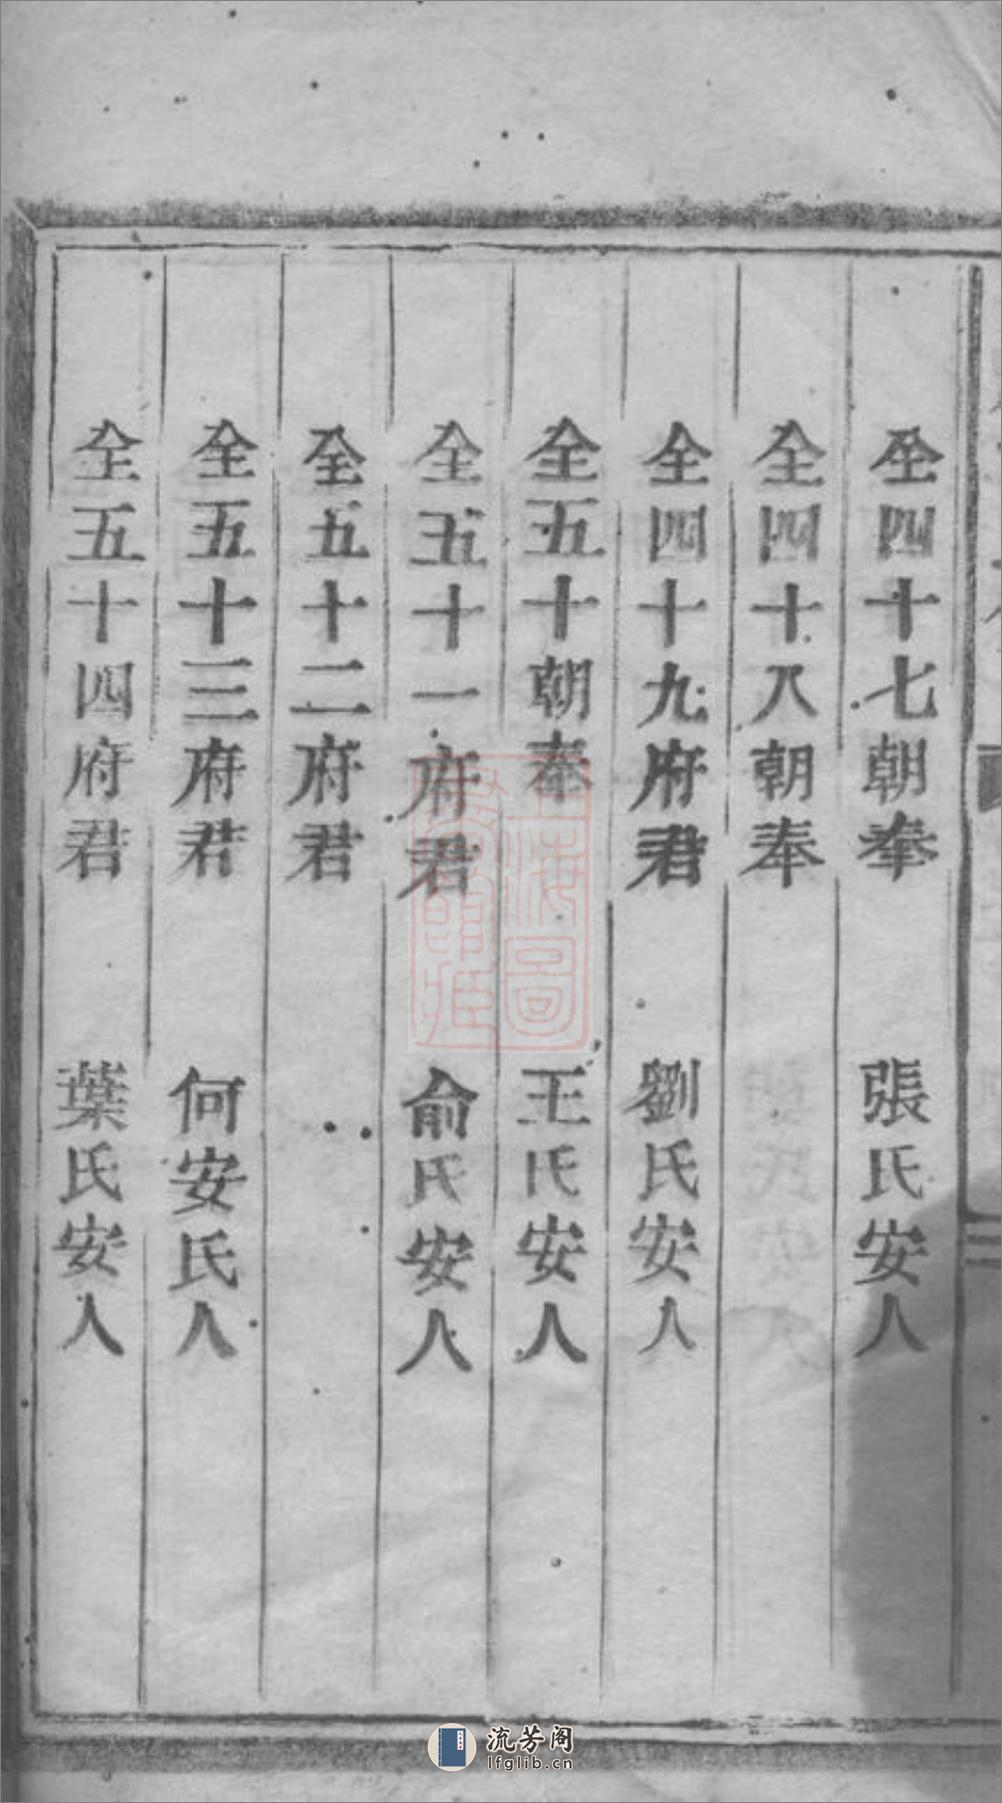 全四十七朝奉 張氏安人
全四十八朝奉 氏安人
全四十九府君 劉氏安人
全五十朝奉 王氏安人
全五十一府君 俞氏安人
全五十二府君
全五十三府君 何安氏人
全五十四府君 葉氏安人
上海圖
流芳阁
lfglib.cn